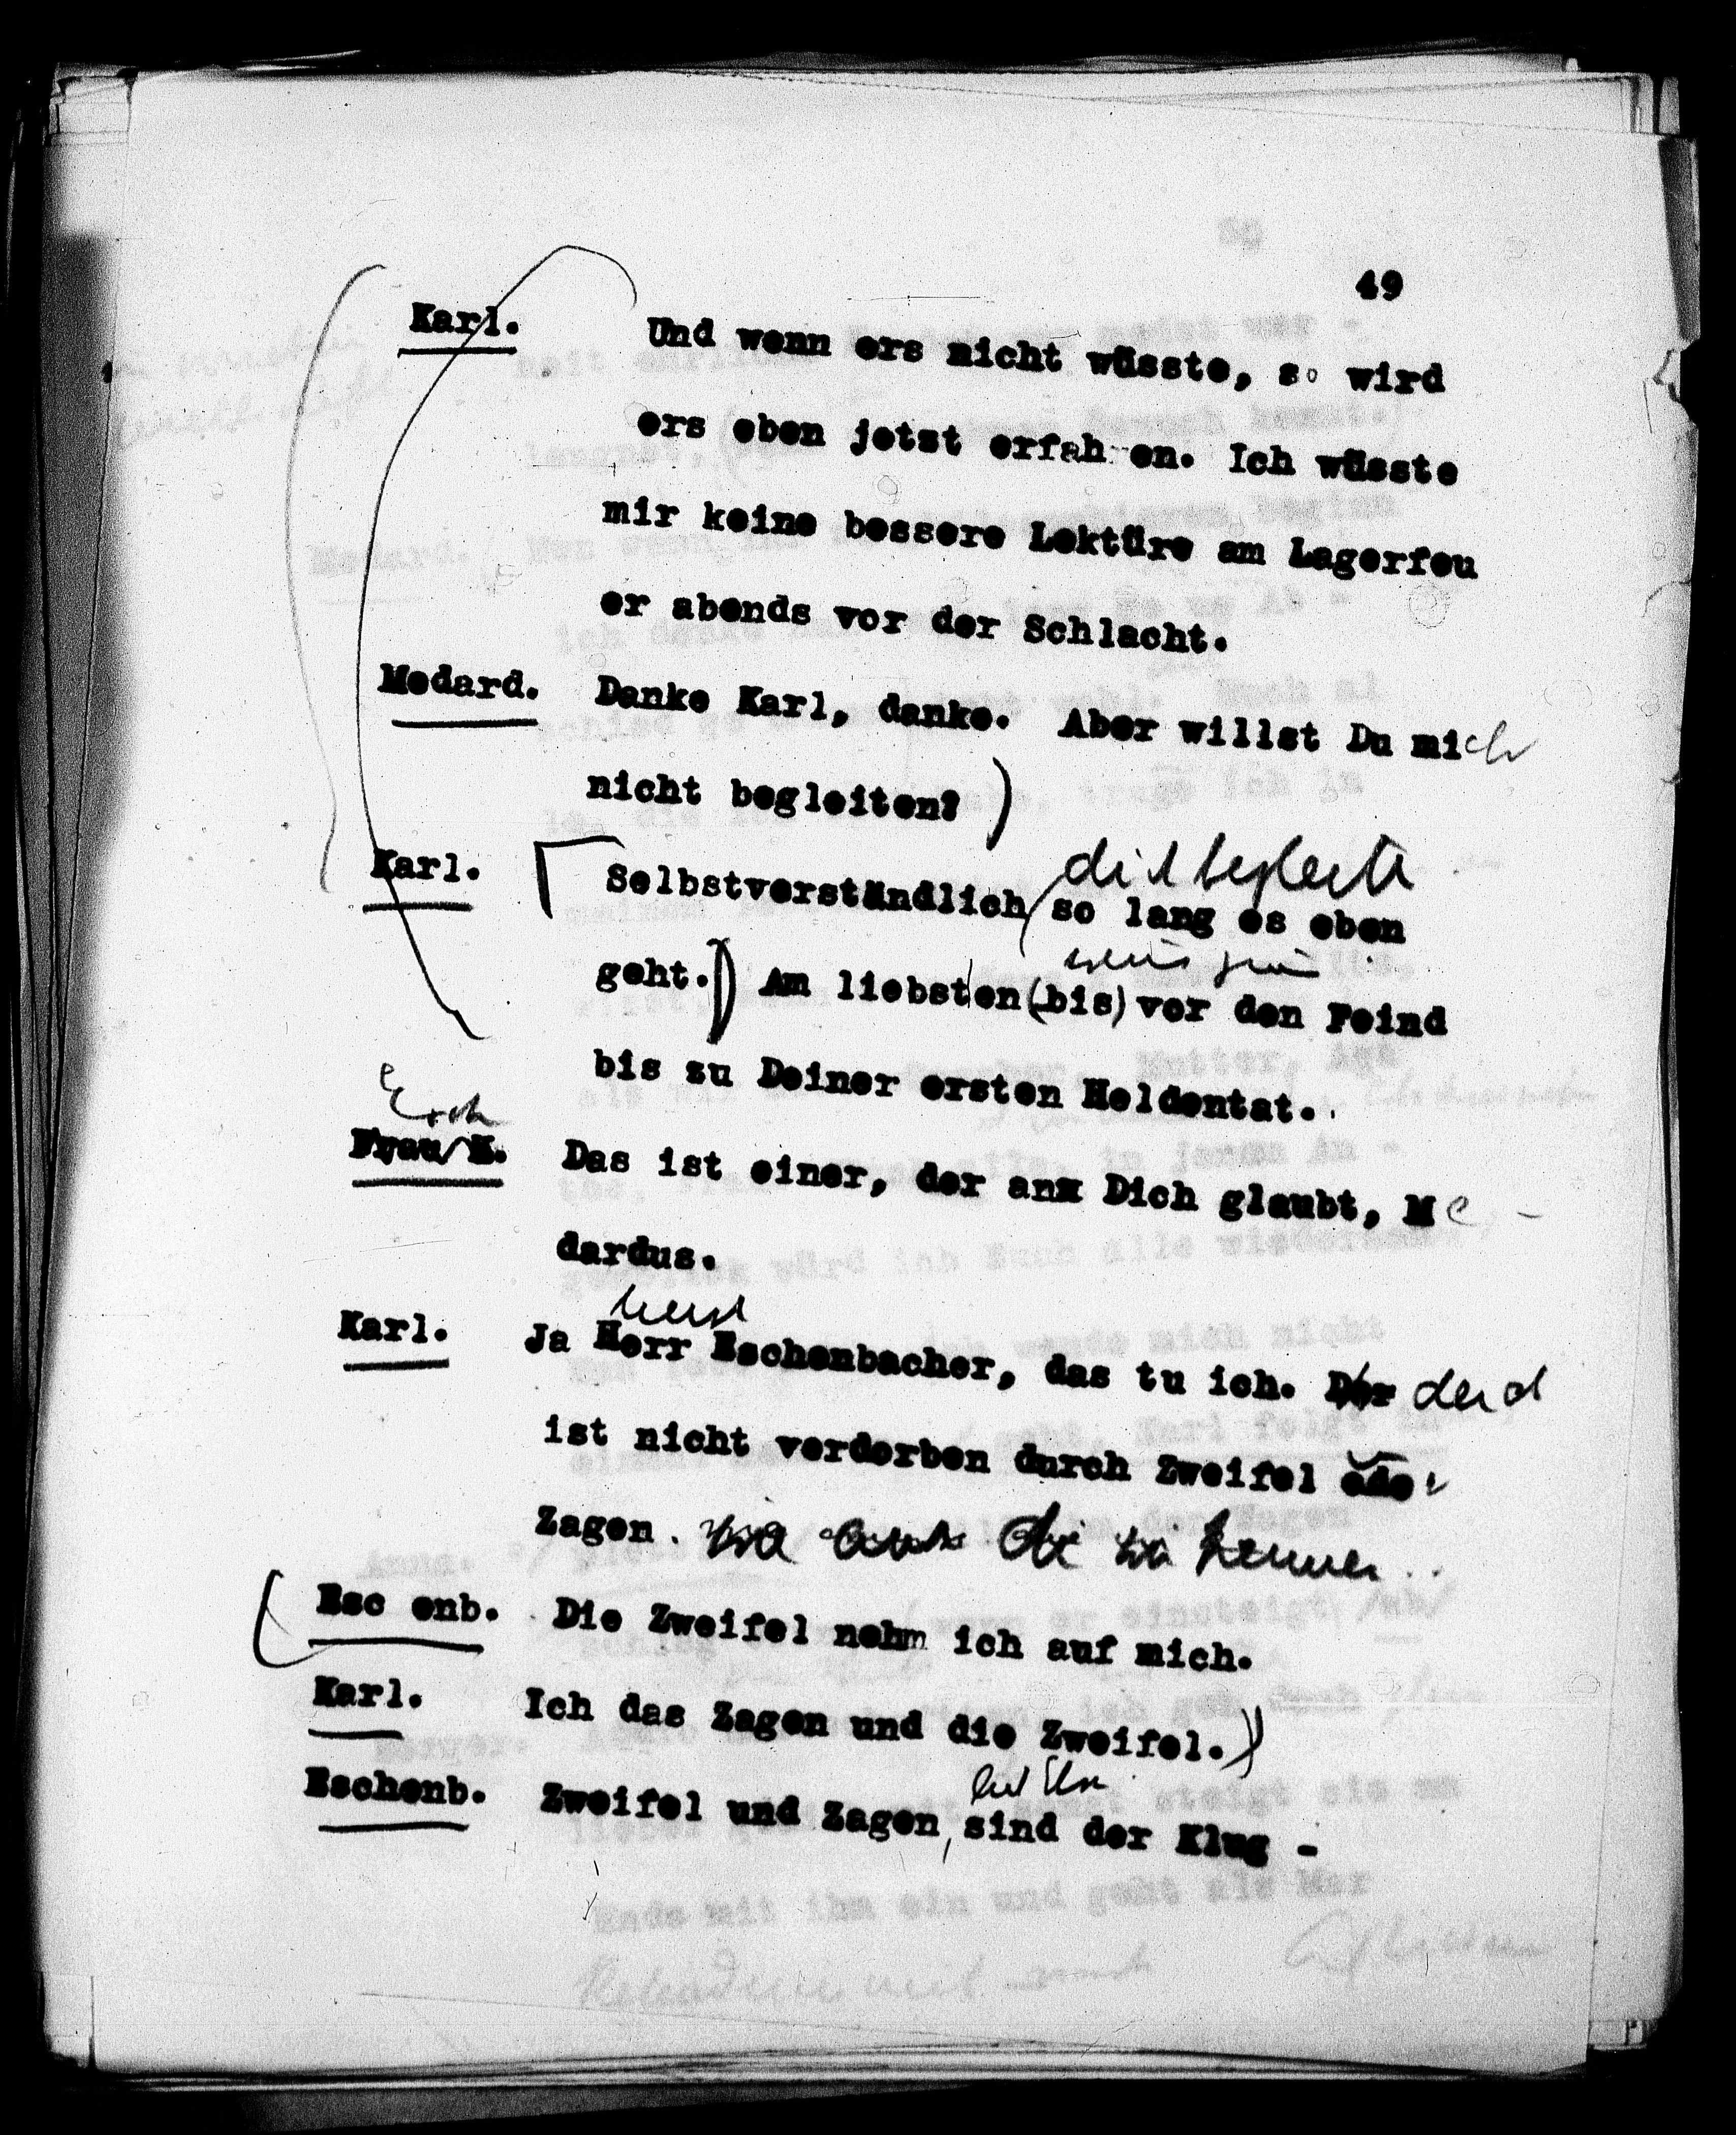 49
Karl. Und wenn ers nicht wüsste, so wird
ers eben jetzt erfah en. Ich wüsste
mir keine bessere Lektüre am Lagerfeu
er abends vor der Schlacht.
Medard. Danke Karl, danke. Aber willst Du mich
nicht begleiten?)
dich begleite
Karl. Selbstverständlich (so lang es eben
geht.) Am liebsten (bis) vor den Feind
bis zu Deiner ersten Heldentat.
Esch
Frau K. Das ist einer, der anx Dich glaubt, Me -
dardus.
Karl. Ja Herr Eschenbacher, das tu ich. Der der
ist nicht verdorben durch Zweifel oder
Zagen. wie die wir kennen ..
(Esc enb. Die Zweifel nehm ich auf mich.
Karl. Ich das Zagen und die Zweifel.)
Eschenb. Zweifel und Zagen, sind der Klug -